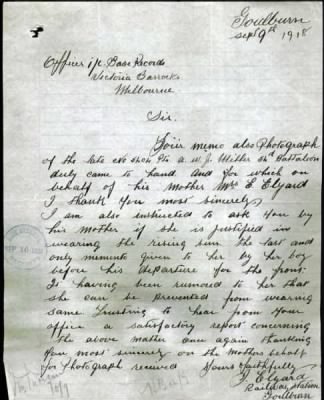 Goulburn
Sept 9th 1918
Officer i/c Base Records
Victoria Barracks
Melbourne
Sir.
Your memo also Photograph
of the late No Pte A. W. J. Miller Battalion
duly came to hand and for which on
behalf of his Mother Mrs E. Elyard
I thank you most sincerely
I am also instructed to ask you by
his mother if she is justified in
wearing the rising sun the last and
only memento given to her by her boy
before his departure for the front.
It having been rumored to her that
she can be prevented from wearing
same Trusting to hear from your
office a satisfactory report concerning
the above matter once again thanking
you most sincerely on the Mothers behalf
for Photograph received
Yours Faithfully
J. Elyard
Railway Station
Goulburn
SEP 10 1918